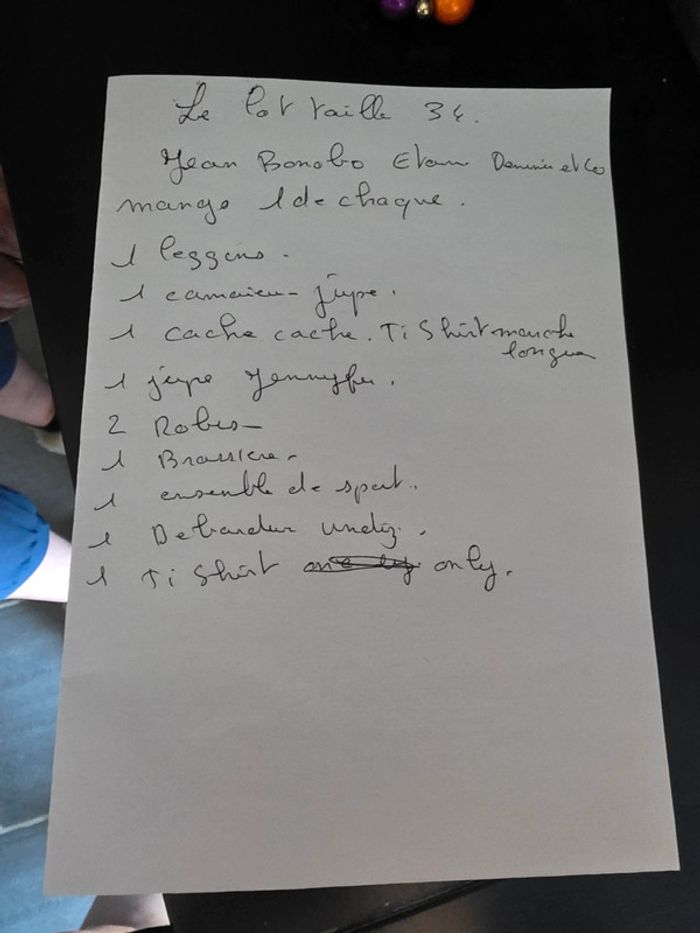 Le lot taille 34.
Jean Bonobo Etam Denim et Co
mango 1 de chaque.
1 leggins.
1 camaieu - jupe.
1 cache cache. Ti Shirt manche
longue
1 jupe Jennyfer.
2 Robes -
1 Brassiere.
1 ensemble de sport.
1 Debardeur undiz.
1 Ti Shirt only.